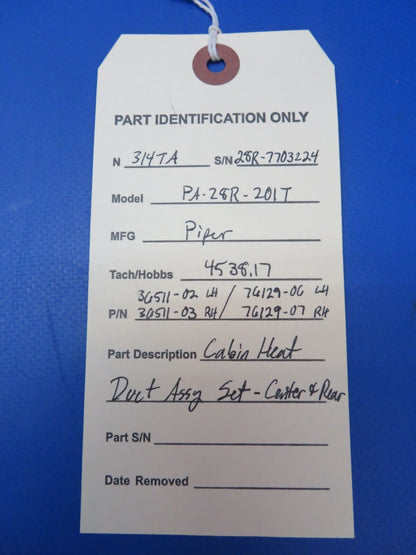 PART IDENTIFICATION ONLY
N 314TA S/N 28R-7703224
Model PA-28R-201T
MFG Piper
Tach/Hobbs 4538.17
36511-02 LH / 76129-06 LH
P/N 36511-03 RH / 76129-07 RH
Part Description Cabin Heat
Duct Assy Set - Center & Rear
Part S/N
Date Removed